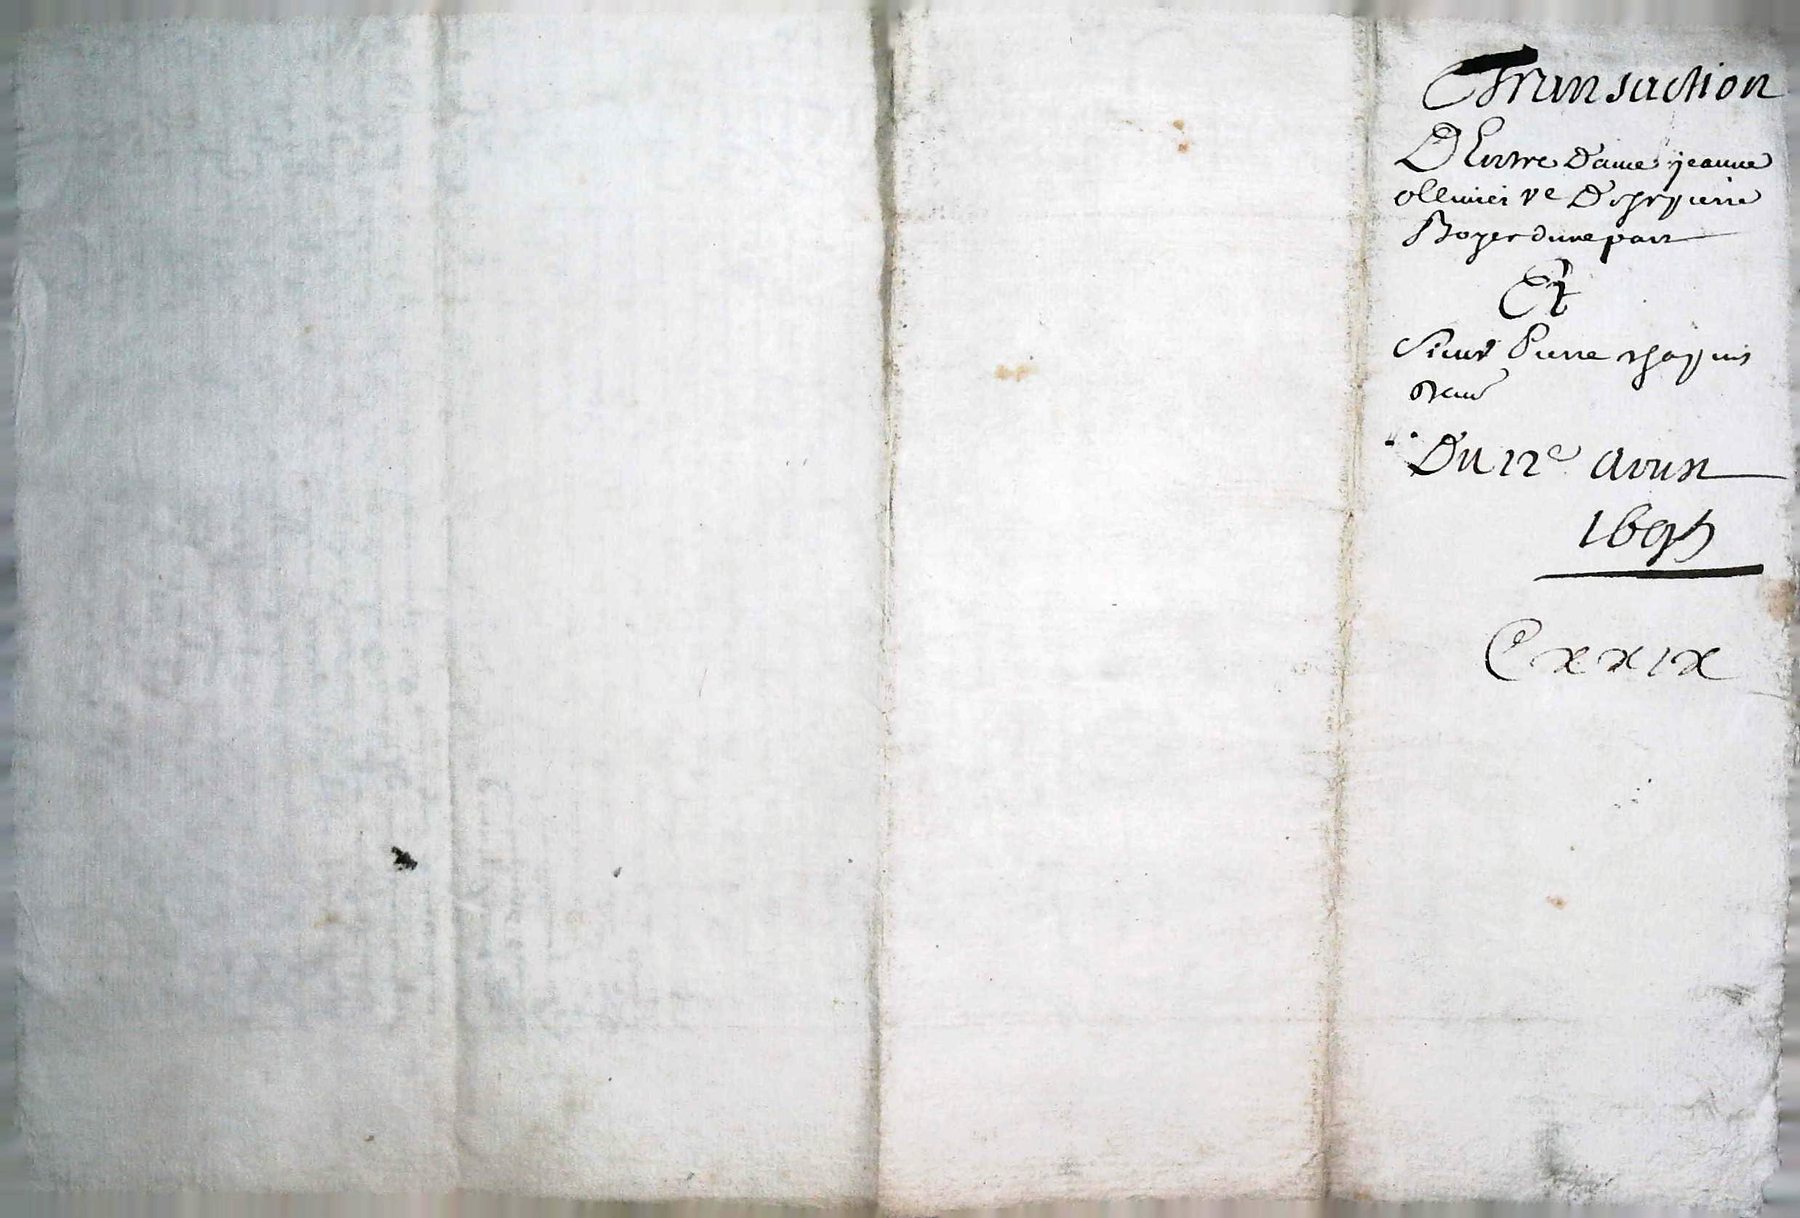 Transaction
D'Entre Dame jeanne
ollivier ve De sr pierre
Boyer dune part
Et
Sieur Pierre
Du 12e Avril
1695
Cxxix